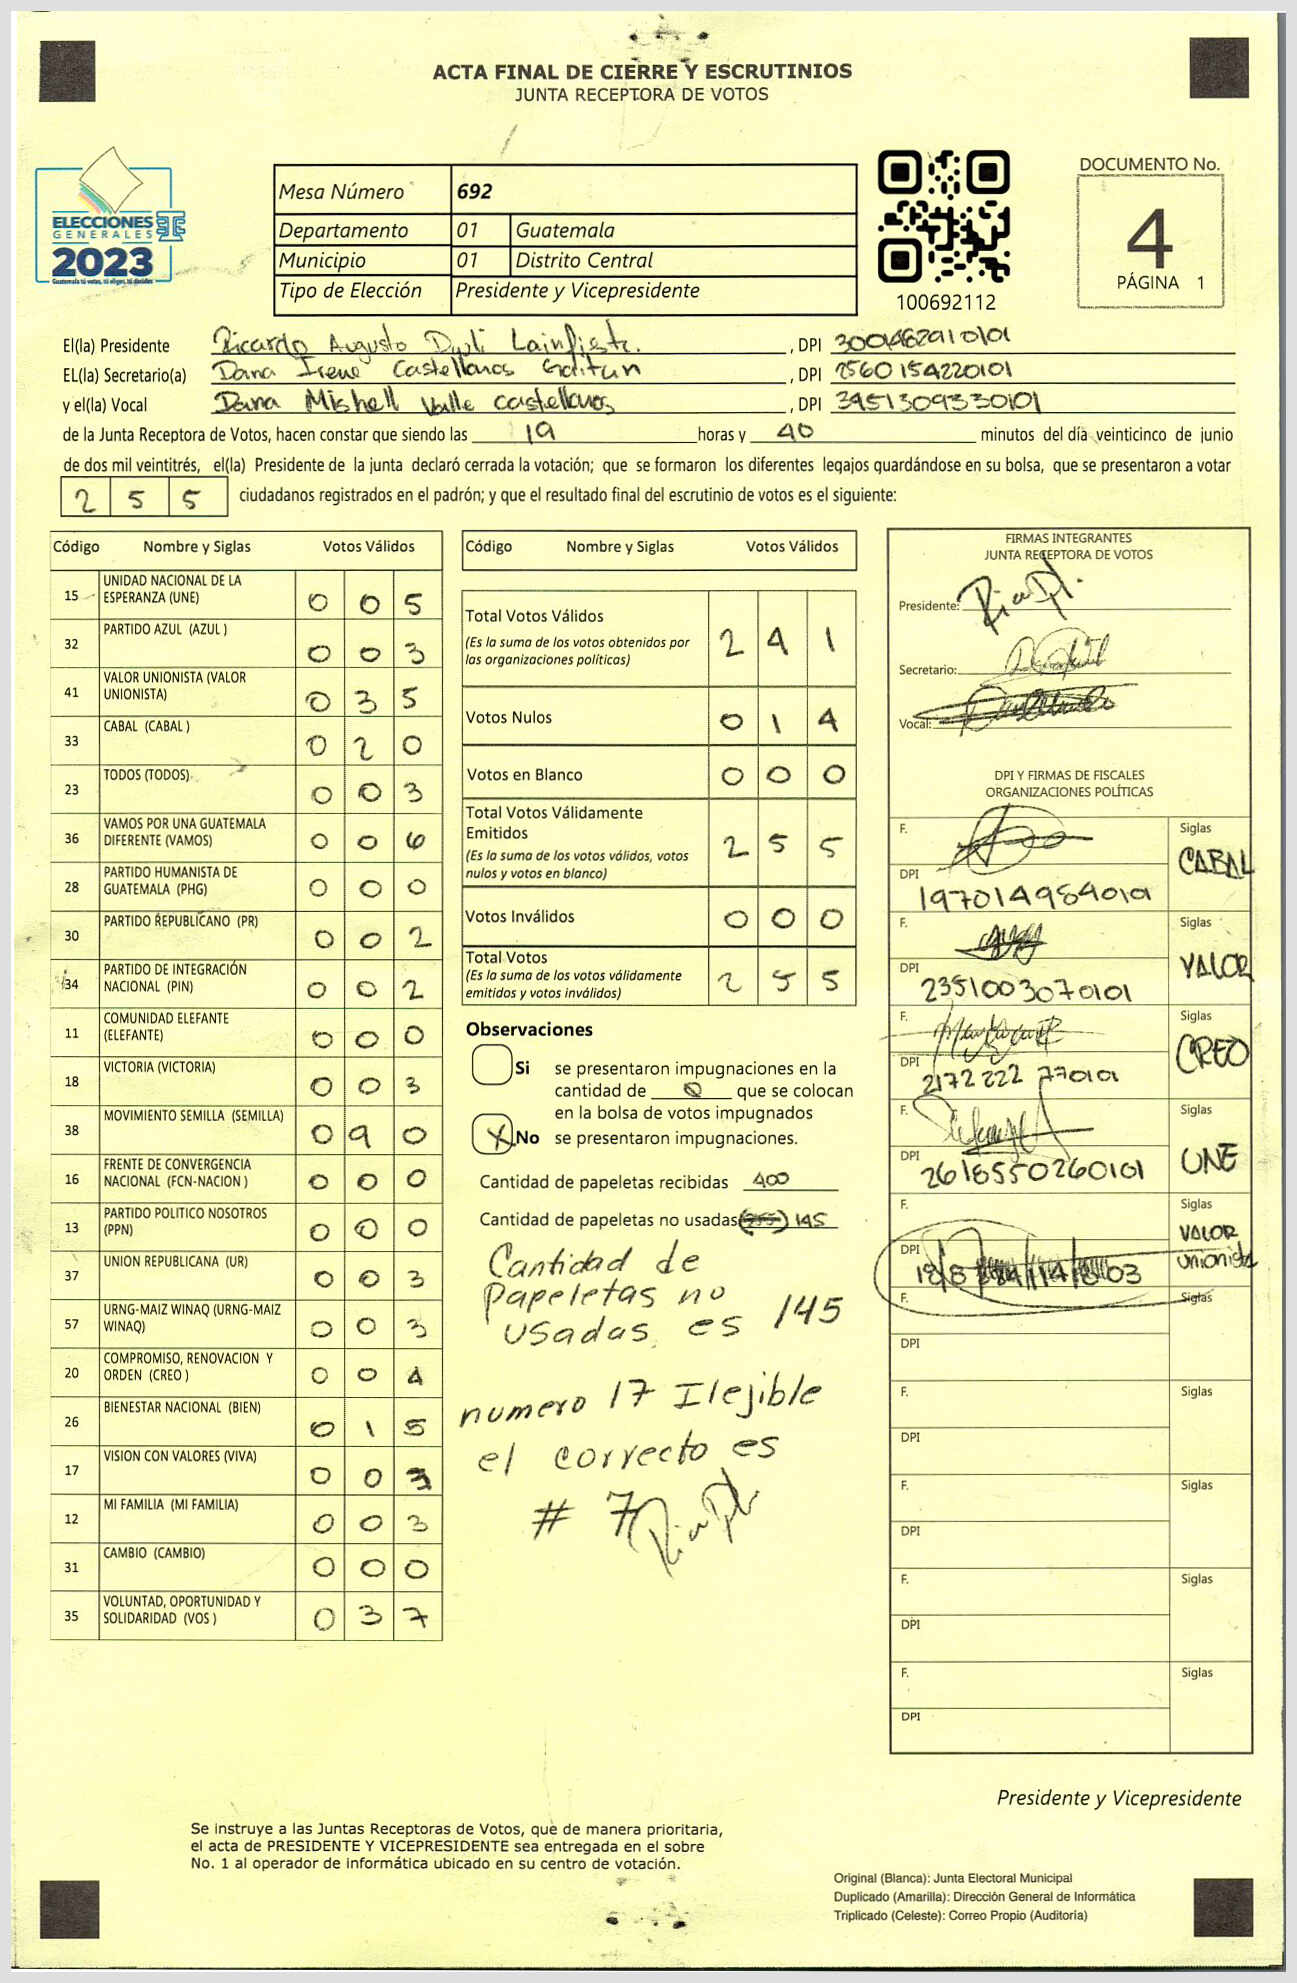 ACTA FINAL DE CIERRE Y ESCRUTINIOS
JUNTA RECEPTORA DE VOTOS
ELECCIONES
GENERALES
2023
Guatemala tú votas, tú eliges, tú decides
Mesa Número 692
Departamento 01 Guatemala
Municipio 01 Distrito Central
Tipo de Elección Presidente y Vicepresidente
100692112
DOCUMENTO No.
4
PÁGINA 1
El(la) Presidente Ricardo Augusto , DPI
EL(la) Secretario(a) Dana Irene Castellanos Gaitán , DPI 2560154220101
y el(la) Vocal Dana Mishell Valle Castellanos , DPI 3451309330101
de la Junta Receptora de Votos, hacen constar que siendo las 19 horas y 40 minutos del día veinticinco de junio
de dos mil veintitrés, el(la) Presidente de la junta declaró cerrada la votación; que se formaron los diferentes legajos guardándose en su bolsa, que se presentaron a votar
2 5 5 ciudadanos registrados en el padrón; y que el resultado final del escrutinio de votos es el siguiente:
Código Nombre y Siglas Votos Válidos
15 UNIDAD NACIONAL DE LA ESPERANZA (UNE) 0 0 5
32 PARTIDO AZUL (AZUL ) 0 0 3
41 VALOR UNIONISTA (VALOR UNIONISTA) 0 3 5
33 CABAL (CABAL ) 0 2 0
23 TODOS (TODOS) 0 0 3
36 VAMOS POR UNA GUATEMALA DIFERENTE (VAMOS) 0 0 6
28 PARTIDO HUMANISTA DE GUATEMALA (PHG) 0 0 0
30 PARTIDO REPUBLICANO (PR) 0 0 2
34 PARTIDO DE INTEGRACIÓN NACIONAL (PIN) 0 0 2
11 COMUNIDAD ELEFANTE (ELEFANTE) 0 0 0
18 VICTORIA (VICTORIA) 0 0 3
38 MOVIMIENTO SEMILLA (SEMILLA) 0 9 0
16 FRENTE DE CONVERGENCIA NACIONAL (FCN-NACION ) 0 0 0
13 PARTIDO POLITICO NOSOTROS (PPN) 0 0 0
37 UNION REPUBLICANA (UR) 0 0 3
57 URNG-MAIZ WINAQ (URNG-MAIZ WINAQ) 0 0 3
20 COMPROMISO, RENOVACION Y ORDEN (CREO ) 0 0 4
26 BIENESTAR NACIONAL (BIEN) 0 1 5
17 VISION CON VALORES (VIVA) 0 0 3
12 MI FAMILIA (MI FAMILIA) 0 0 3
31 CAMBIO (CAMBIO) 0 0 0
35 VOLUNTAD, OPORTUNIDAD Y SOLIDARIDAD (VOS ) 0 3 7
Código Nombre y Siglas Votos Válidos
Total Votos Válidos 2 4 1
(Es la suma de los votos obtenidos por
las organizaciones políticas)
Votos Nulos 0 1 4
Votos en Blanco 0 0 0
Total Votos Válidamente
Emitidos 2 5 5
(Es la suma de los votos válidos, votos
nulos y votos en blanco)
Votos Inválidos 0 0 0
Total Votos 2 5 5
(Es la suma de los votos válidamente
emitidos y votos inválidos)
Observaciones
Si se presentaron impugnaciones en la
cantidad de 0 que se colocan
en la bolsa de votos impugnados
X No se presentaron impugnaciones.
Cantidad de papeletas recibidas 400
Cantidad de papeletas no usadas (255) 145
Cantidad de
papeletas no
usadas es 145
numero 17 Ilejible
el correcto es
# 7
FIRMAS INTEGRANTES
JUNTA RECEPTORA DE VOTOS
Presidente:
Secretario:
Vocal:
DPI Y FIRMAS DE FISCALES
ORGANIZACIONES POLÍTICAS
F. Siglas
CABAL
DPI 1970149840101
F. Siglas
VALOR
DPI 2351003070101
F. Siglas
CREO
DPI 2172 222 770101
F. Siglas
UNE
DPI 2618550260101
F. Siglas
VALOR
unionista
DPI
F. Siglas
DPI
F. Siglas
DPI
F. Siglas
DPI
F. Siglas
DPI
F. Siglas
DPI
Presidente y Vicepresidente
Se instruye a las Juntas Receptoras de Votos, que de manera prioritaria,
el acta de PRESIDENTE Y VICEPRESIDENTE sea entregada en el sobre
No. 1 al operador de informática ubicado en su centro de votación.
Original (Blanca): Junta Electoral Municipal
Duplicado (Amarilla): Dirección General de Informática
Triplicado (Celeste): Correo Propio (Auditoría)